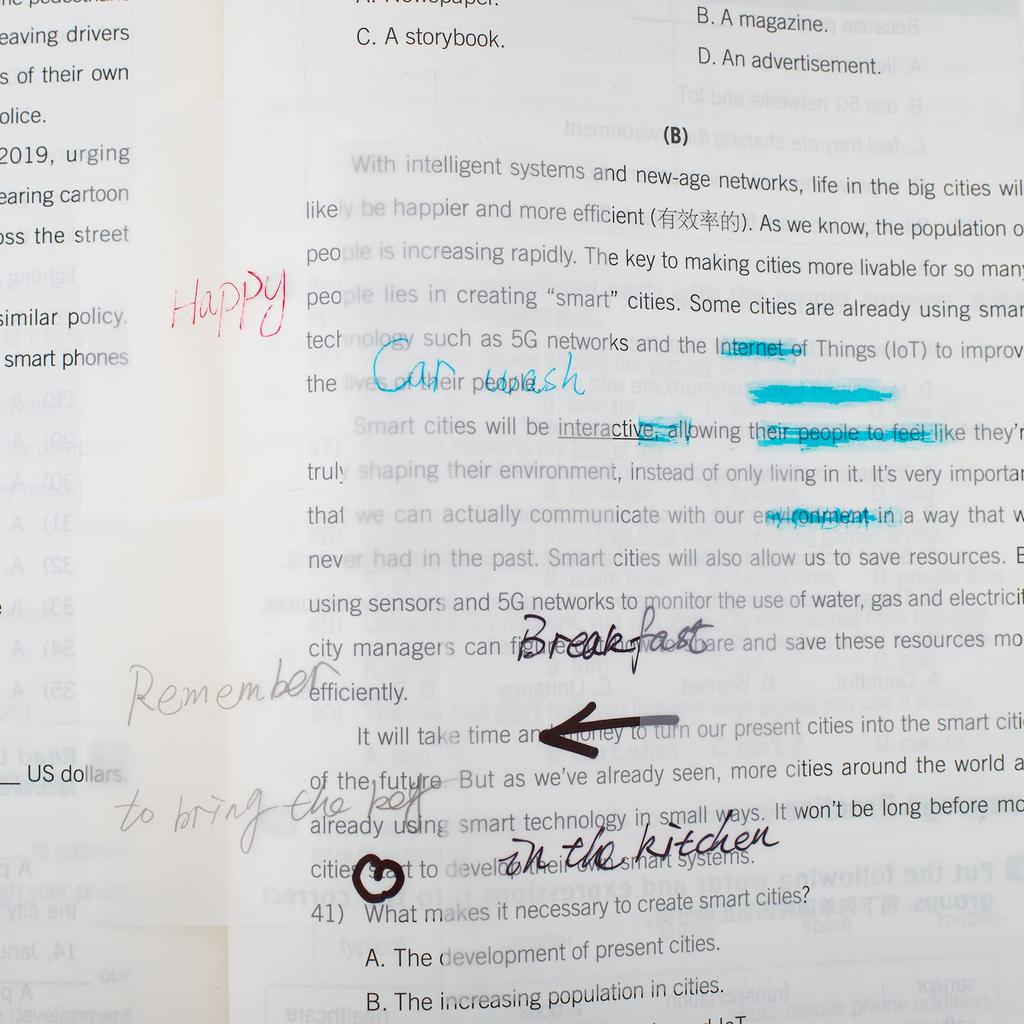 eaving drivers
s of their own
olice.
2019, urging
earing cartoon
oss the street
similar policy.
smart phones
US dollars.
B. A magazine.
C. A storybook.
D. An advertisement.
(B)
With intelligent systems and new-age networks, life in the big cities wil
likely be happier and more efficient (有效率的). As we know, the population o
people is increasing rapidly. The key to making cities more livable for so man
Happy
people lies in creating “smart” cities. Some cities are already using smar
technology such as 5G networks and the Internet of Things (IoT) to improv
the lives of their people.
Car wash
Smart cities will be interactive, allowing their people to feel like they'r
truly shaping their environment, instead of only living in it. It's very importa
that we can actually communicate with our environment in a way that w
never had in the past. Smart cities will also allow us to save resources. B
using sensors and 5G networks to monitor the use of water, gas and electricit
Breakfast
city managers can figure out how to share and save these resources mo
Remember
efficiently.
It will take time and money to turn our present cities into the smart citi
of the future. But as we've already seen, more cities around the world a
to bring the key
already using smart technology in small ways. It won't be long before mo
in the kitchen
cities start to develop their own smart systems.
41) What makes it necessary to create smart cities?
A. The development of present cities.
B. The increasing population in cities.